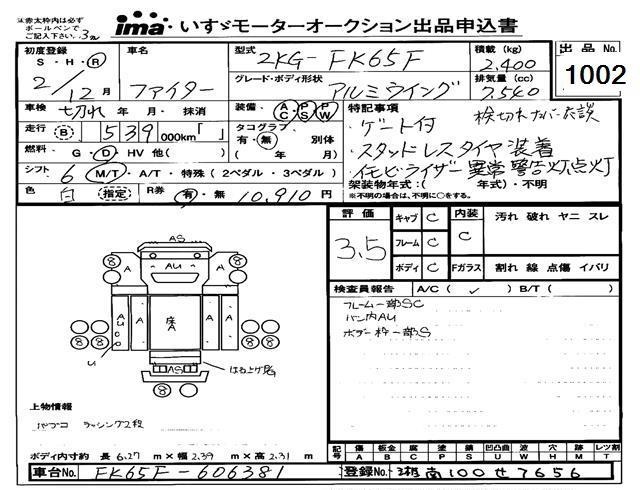 注赤太枠内は必ず
ボールペンで
ご記入下さい。
ima いすゞモーターオークション出品申込書
出品No.
1002
初度登録
S・H・R
2/12月
車名
ファイター
型式 2KG-FK65F
グレード・ボディ形状
アルミウイング
積載(kg)
2,400
排気量(cc)
7,540
車検 切れ 年 月・抹消
装備 AC PS PW
特記事項
検切れナンバー応談
・ゲート付
・スタッドレスタイヤ装着
・イモビライザー異常警告灯点灯
走行 B 539 000km「 」
タコグラフ
有・無 別体
( 年 月)
燃料 G・D・HV 他( )
シフト 6 M/T・A/T・特殊(2ペダル・3ペダル)
架装物年式:( 年式)・不明
※不明の場合は、不明に○をする。
色 白 指定 R券 有・無 10,910円
評価
3.5
キャブ C
フレーム C
ボディ C
内装
C
Fガラス
汚れ 破れ ヤニ スレ
割れ 線 点傷 イバリ
検査員報告 A/C( ✓ ) B/T( )
フレーム一部SC
バン内AU
ボデー枠一部S
AS
8 A AU A 8
8 8
A
AU
A
床A
A
A
U
AS
はね上げG
8 8
上物情報
パブコ ラッシング2段
ボディ内寸約 長 6.27 m×幅 2.39 m×高 2.31 m.
記号 傷 板金 腐 凹 塗 錆 凹凸曲 波 穴 跡 レツ割
A B C P S U W H M T
車台No. FK65F-606381
登録No. 相模 100 せ 7656